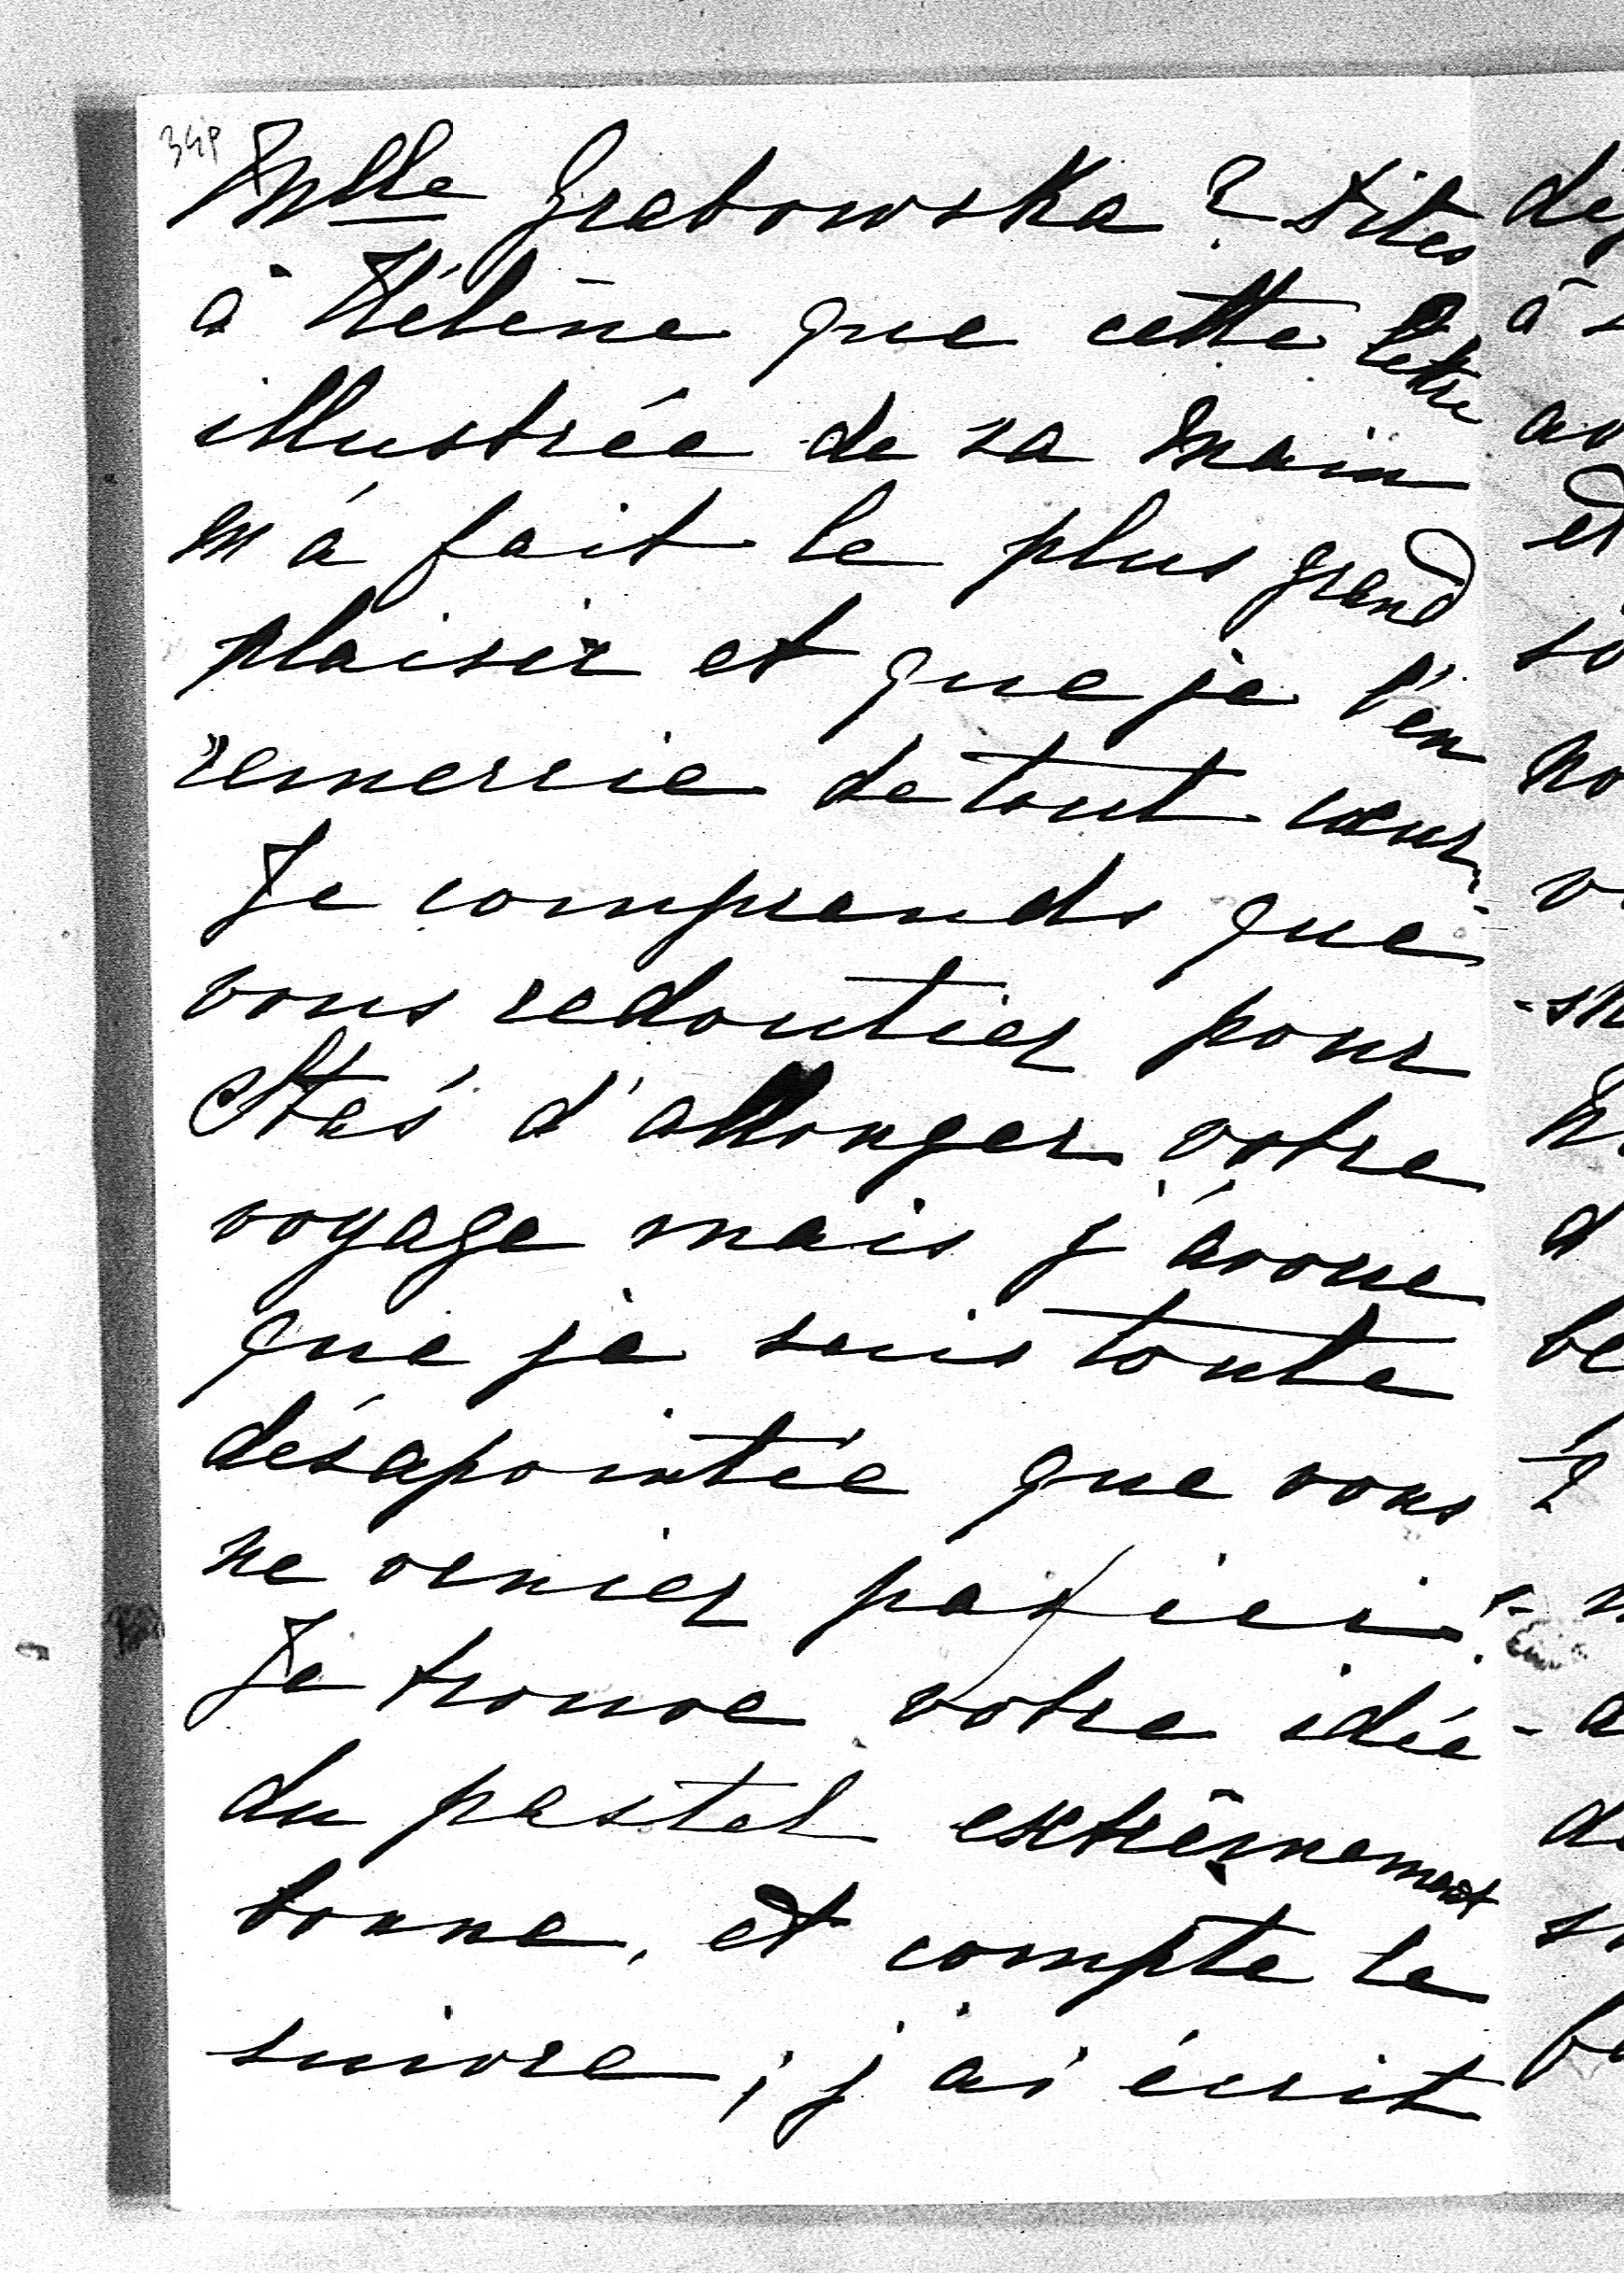 Mlle Grabowska ? Dites
à Hélène que cette lettre
illustrée de sa main
m'a fait le plus grand
plaisir et que je l'en
remercie de tout cœur.
Je comprends que
vous redoutiez pour
Staś d'allonger votre
voyage mais j'avoue
que je suis toute
désapointée que vous
ne veniez pas ici.
Je trouve votre idée
du pastel extrêmement
bonne, et compte la
suivre ; j'ai écrit